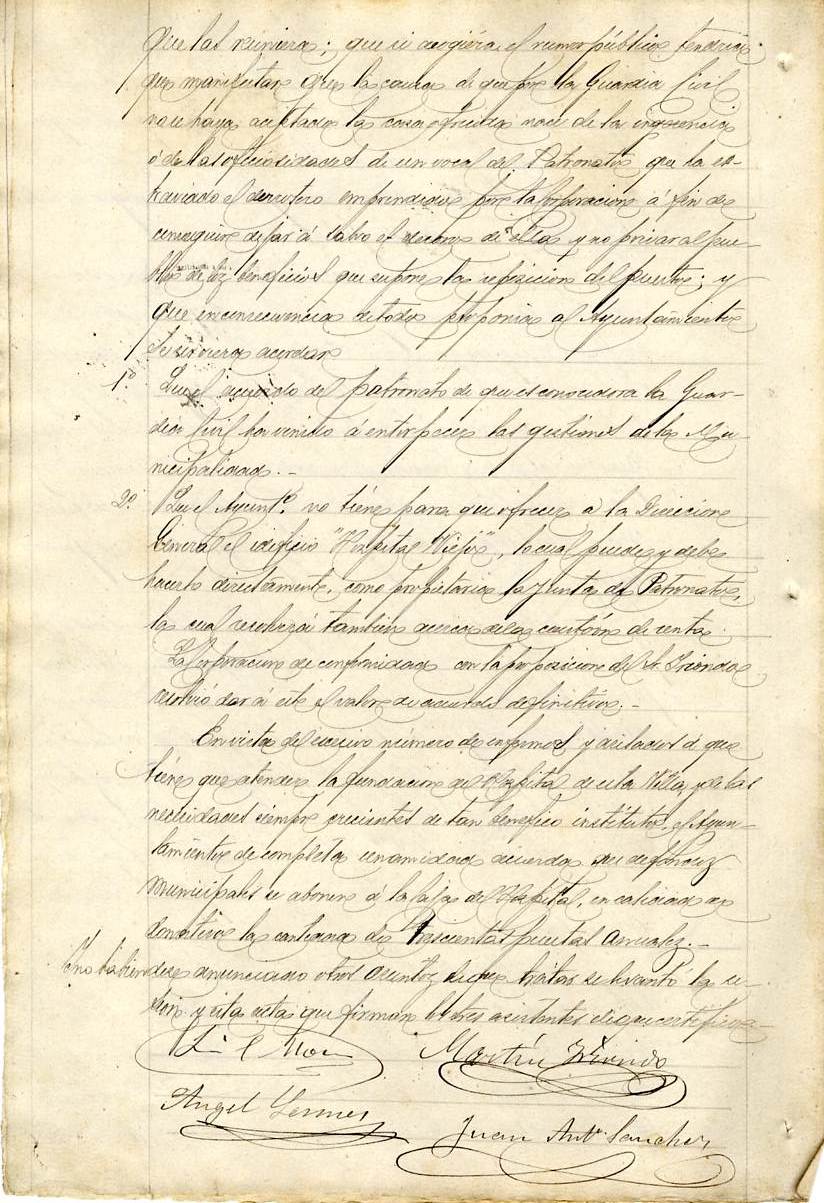 que las reuniera; que si acogiera el rumor público tendria
que manifestar que la causa de que por la Guardia Civil
no se haya aceptado la casa ofrecida nace de la ingerencia
ó de las oficiosidades de un vocal del Patronato que ha es-
traviado el derrotero emprendido por la Corporacion á fin de
conseguir dejar á salvo el decoro de ella y no privar al pue-
blo de los beneficios que supone la reposicion del puesto; y
que en consecuencia de todo proponia al Ayuntamiento
se sirviera acordar
1º Que el acuerdo del patronato de que es conocedora la Guar-
dia Civil ha venido á entorpecer las gestiones de la Mu-
nicipalidad.-
2º Que el Ayuntº. no tiene para que ofrecer á la Direccion
General el edificio "Hospital Viejo", lo cual puede y debe
hacerlo directamente, como propietaria la Junta de Patronato,
la cual resolverá tambien acerca de la cuestión de renta.
La Corporacion de conformidad con la proposicion del Sr. Iriondo
resolvió dar á este el valor de acuerdo definitivo.-
En vista del escesivo número de enfermos y asilados á que
tiene que atender la fundacion del Hospital de esta Villa y de las
necesidades siempre crecientes de tan benefico instituto, el Ayun-
tamiento de completa unanimidad acuerda que de fondos
municipales se abonen á la Caja del Hospital, en calidad de
donativo la cantidad de trescientas pesetas anuales.-
Y no habiendose anunciado otros asuntos de que tratar se levantó la se-
sion y esta acta que firman los tres asistentes de que certifico.-
Martin Iriondo
Angel
Juan Antº Sanchez